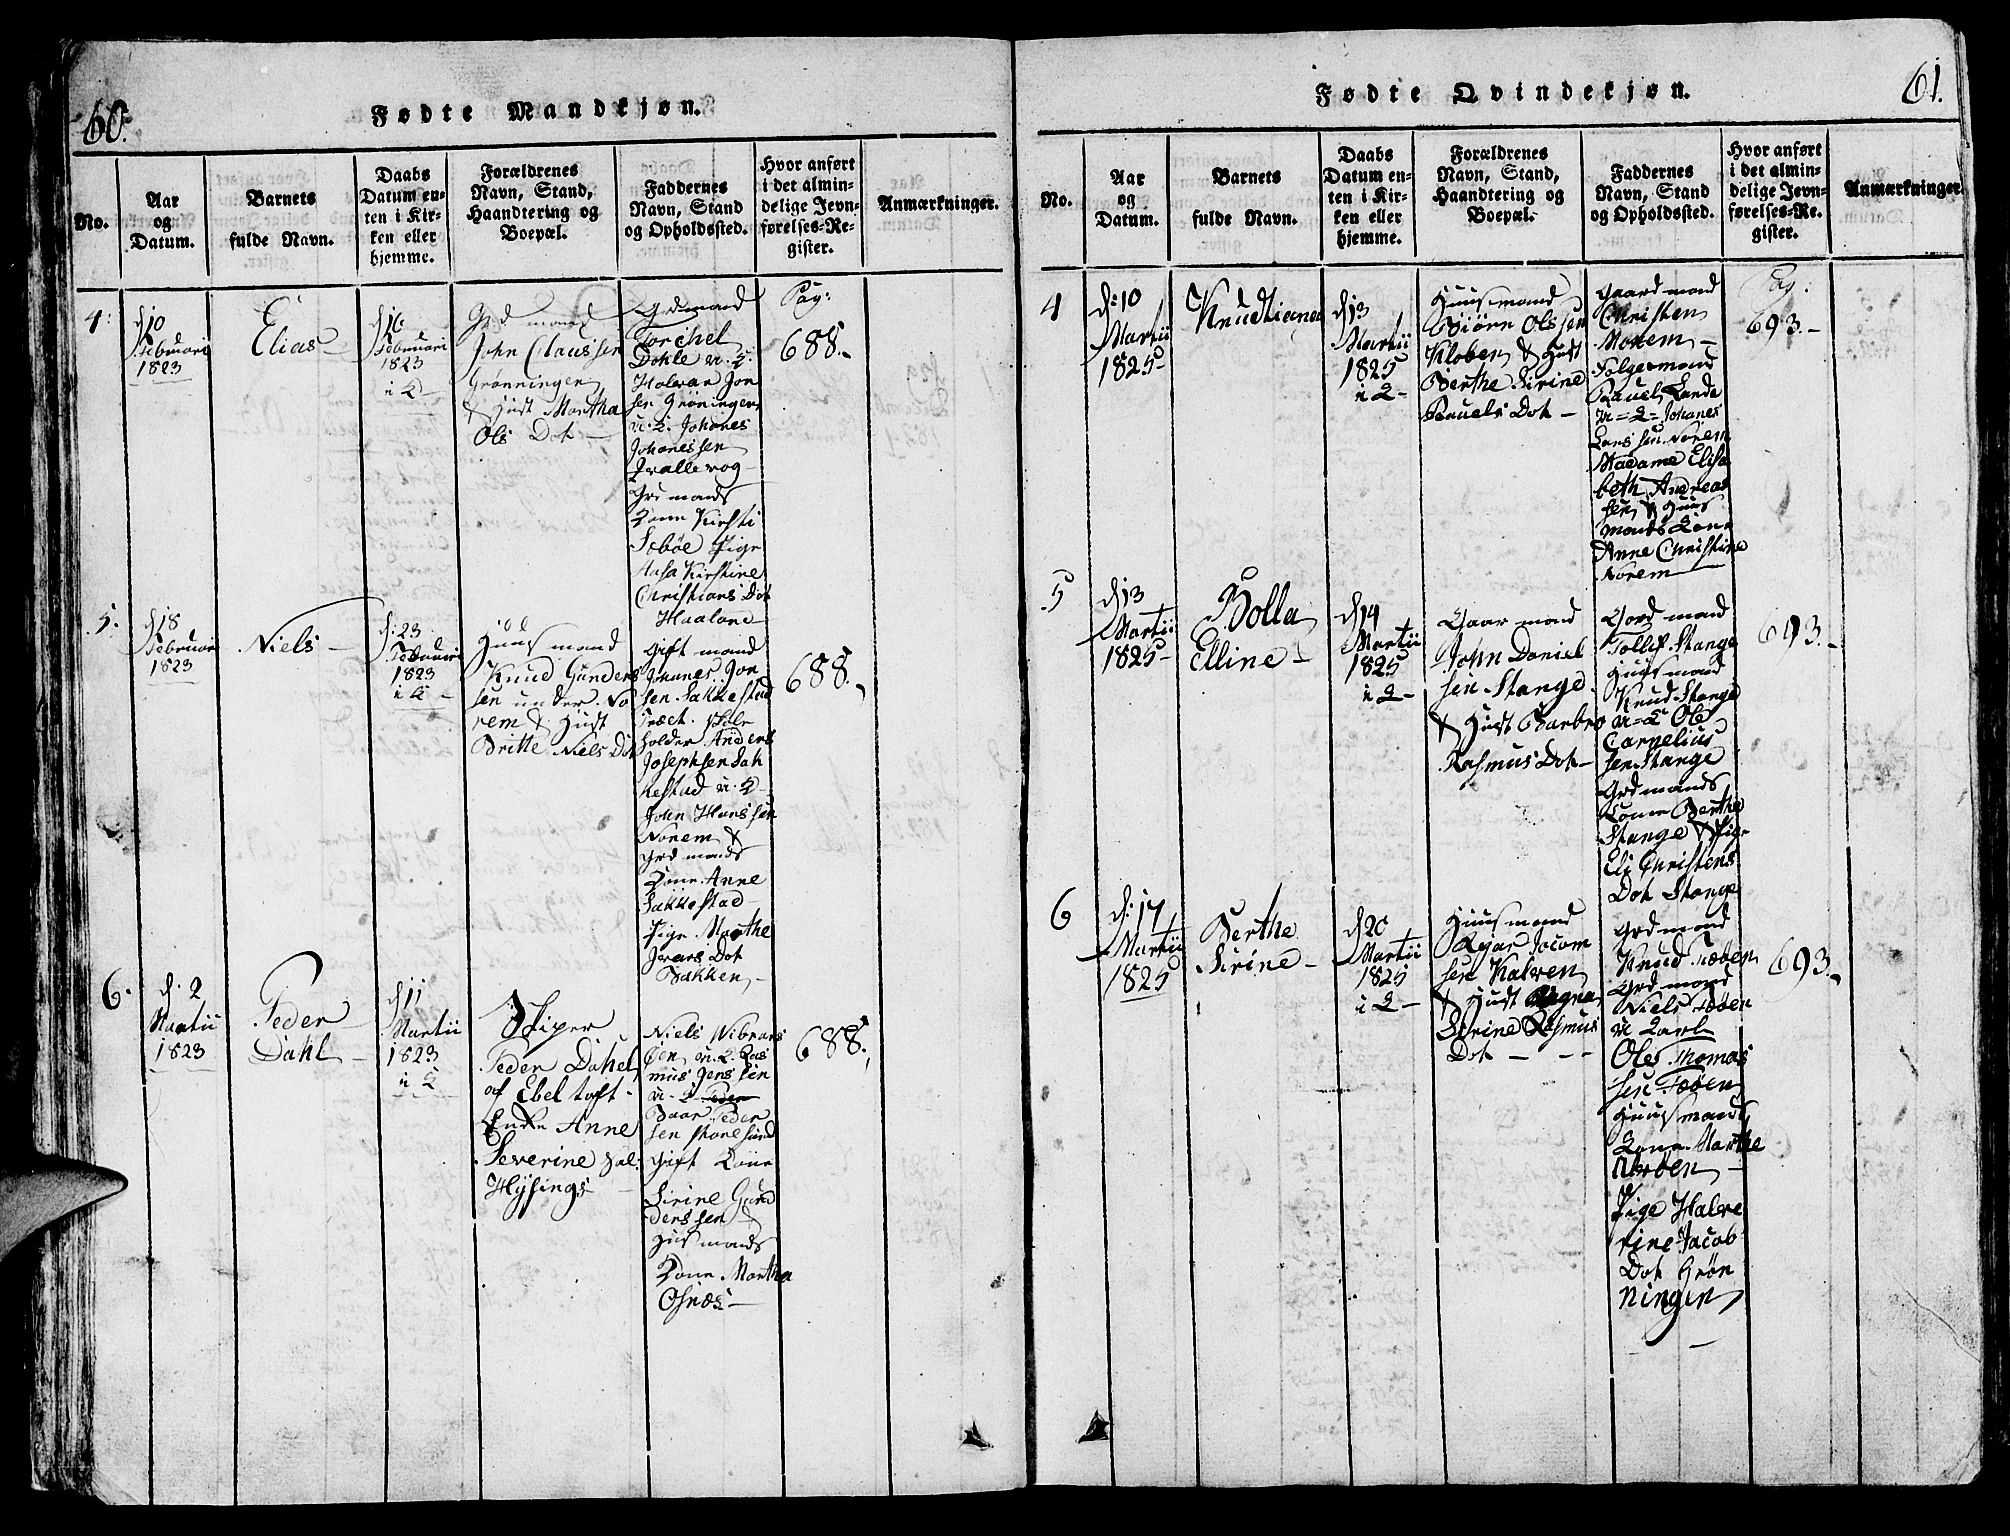 60.
Fødte Mandkjøn.
No.
Aar
og
Datum.
Barnets
fulde Navn.
Daabs
Datum en-
ten i Kir-
ken eller
hjemme.
Forældrenes
Navn, Stand,
Haandtering og
Boepæl.
Faddernes
Navn, Stand
og Opholdssted.
Hvor anført
i det almin-
delige Jevn-
førelses-Re-
gister.
Anmærkninger.
4:
d 10
Februari
1823
Elias
d 16
Februari
1823
i K
Grd mand
John Claussen
Grønningen
& Hust Martha
Ols Dot
Grdmand
Torchel
Dohle
Halvar Jon
sen Grøningen
u. K. Johanes
Johanessen
Qvallevog
Grd mands
Kone Kirsti
Sæbøe Pige
Aasa Kirstine
Christians Dot
Haaland
Pag:
688.
5.
d 18
Februari
1823
Niels
d: 23
Februari
1823
i K
Huusmand
Knud Gunders
sen under No
rem & Hust
Britte Niels Dot
Gift mand
Johanes Jon
sen Sakkestad
holder Anders
Josephsen Sak
kestad u. K
John Hanssen
Norem &
Grd mands
Kone Anne
Sakkestad
Pige Marthe
Ivars Dot
Bakken
688.
6.
d. 2
Martii
1823
Peder
Dahl
d 11
Martii
1823
i K
Skiper
Peder Dahel
af Ebeltoft
Enke Anne
Severine
Hysings
Niels Wibrans
sen u. K. Ras
mus Jenssen
u. K Peder
Baar Peder
sen
Gift Kone
Sirine Gund
derssen
Huusmands
Kone Martha
Osnæs
688.
61.
Fødte Qvindekjøn.
No.
Aar
og
Datum.
Barnets
fulde Navn.
Daabs
Datum en-
ten i Kir-
ken eller
hjemme.
Forældrenes
Navn, Stand,
Haandtering og
Boepæl.
Faddernes
Navn, Stand
og Opholdssted.
Hvor anført
i det almin-
delige Jevn-
førelses-Re-
gister.
Anmærkninger.
4
d: 10
Martii
1825
Knudtiana
d 13
Martii
1825
i K
Huusmand
Biørn Olssen
Kloben & Hust
Berthe Sirine
Pauels Dot
Gaardmand
Christen
Norem
Folgemand
Pauel Lande
u = K = Johanes
Larssen Norem
Madame Elisa
beth Andreas
sen & Huus
mands Kone
Anne Christine
Norem
Pag.
693.
5
d 13
Martii
1825
Bolla
Elline
d 14
Martii
1825
i K
Gaar mand
John Daniel
sen Stange
& Hust Barbro
Rasmus Dot
Gord mand
Tollif Stange
Huusmand
Knud Stange
u = K Ole
Cornelius
sen Stange
Grdmands
Kone Berthe
Stange & Pige
Eli Christens
Dot Stange
693.
6
d: 17
Martii
1825
Berthe
Sirine
d 20
Martii
1825
i K
Huusmand
Ejar Jacom
sen Kalven
& Hust Ragna
Sirine Rasmus
Dot
Grdmand
Knud Tæøen
Grdmand
Niels Tæøen
u Karl
Ole Thomas
sen Tæøen
Huusmands
Kone Marthe
Pige Halve
rine Jacob
Dot Grøn
ningen
693.